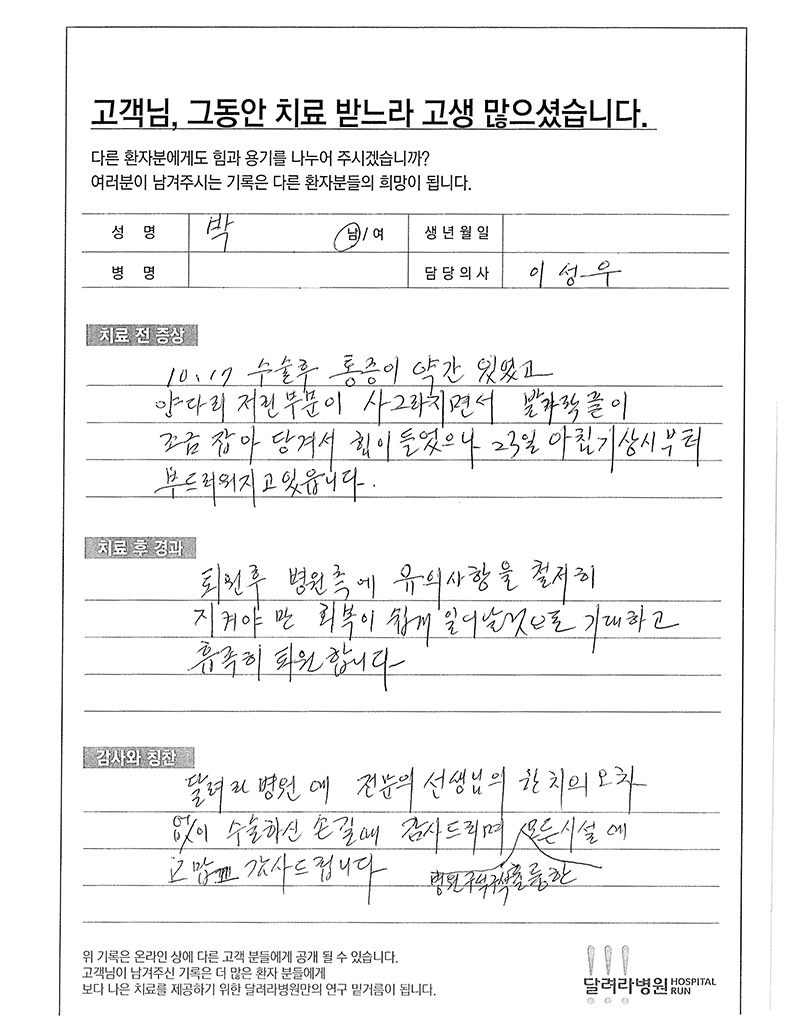 고객님, 그동안 치료 받느라 고생 많으셨습니다.
다른 환자분에게도 힘과 용기를 나누어 주시겠습니까?
여러분이 남겨주시는 기록은 다른 환자분들의 희망이 됩니다.
성 명 박 남/여 생년월일
병 명 담당의사 이성우
치료 전 증상
10.17 수술후 통증이 약간 있었고
양다리 저린부문이 사그라지면서 발가락끝이
조금 잡아 당겨서 힘이 들었으나 23일 아침기상시부터
부드러워지고있읍니다.
치료 후 경과
퇴원후 병원측에 유의사항을 철저히
지켜야 만 회복이 쉽게 일어날것으로 기대하고
흡족히 퇴원합니다
감사와 칭찬
달려라병원에 전문의 선생님의 한치의오차
없이 수술하신 손길에 감사드리며 모든시설에
고맙고 감사드립니다 병원구석구석훌륭한
위 기록은 온라인 상에 다른 고객 분들에게 공개 될 수 있습니다.
고객님이 남겨주신 기록은 더 많은 환자 분들에게
보다 나은 치료를 제공하기 위한 달려라병원만의 연구 밑거름이 됩니다.
달려라병원 HOSPITAL RUN